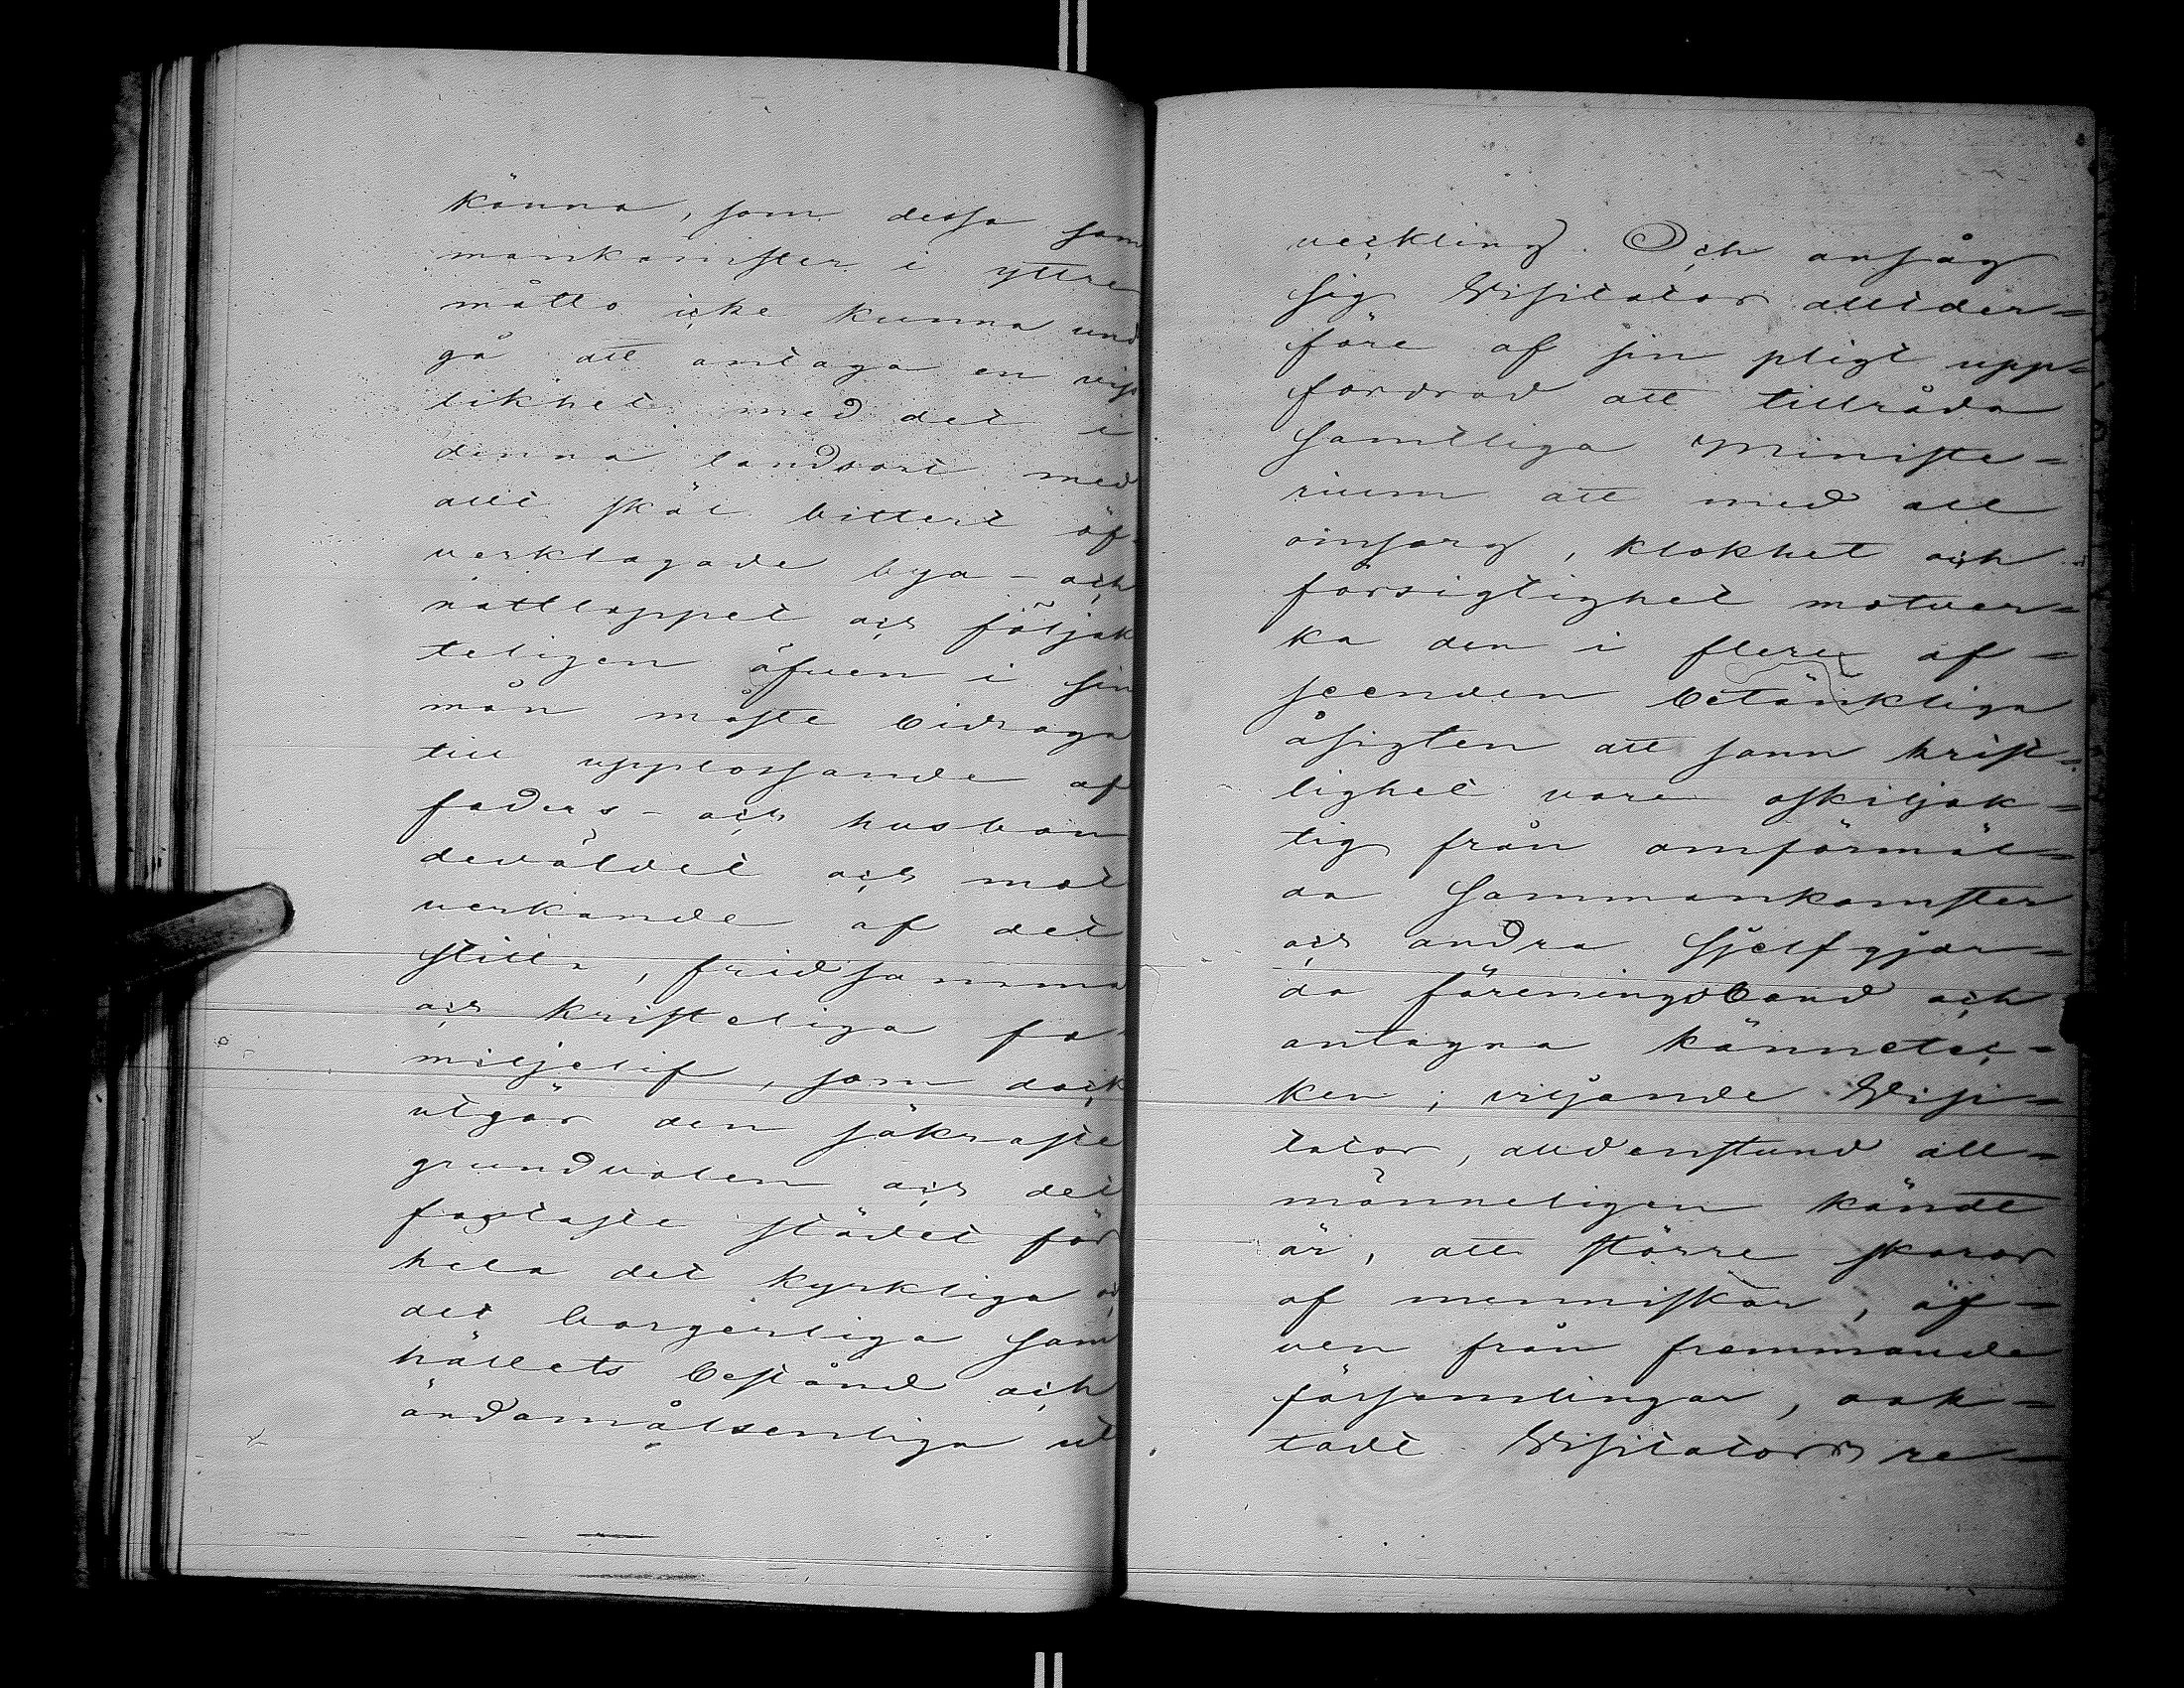 känna, som dessa sam
mankomster i yttre
måtto icke kunna und
gå att antaga en viss
likhet med det i
denna landsort med
allt skäl bittert öf-
verklagade bya- och
nattloppet och följak
teligen äfven i sin
mån måste bidraga
till upplossande af
faders- och husbon
deväldet och mot
verkande af det
stilla, fridsamma
och kristeliga fa-
miljelif, som dock
utgör den säkraste
grundvalen och det
fastaste stödet för
hela det kyrkliga och
det borgerliga sam
hällets bestånd och
ändamålsenliga ut
veckling. Och ansåg
sig Visitator alltder=
före af sin pligt upp=
fordrad att tillråda
samtliga Ministe=
rium att med all
omsorg, klokhet och
försigtighet motver=
ka den i flere af=
seenden betänkliga
åsigten att sann krist=
lighet vore oskiljak=
tig från omförmäl=
da sammankomster
och andra sjelfgjor=
da föreningsband och
antagna kännetec=
ken; viljande Visi=
tator, alldenstund all=
männeligen kändt
är, att större skaror
af menniskor, äf=
ven från främmande
församlingar, ook=
tadt Visitators re=